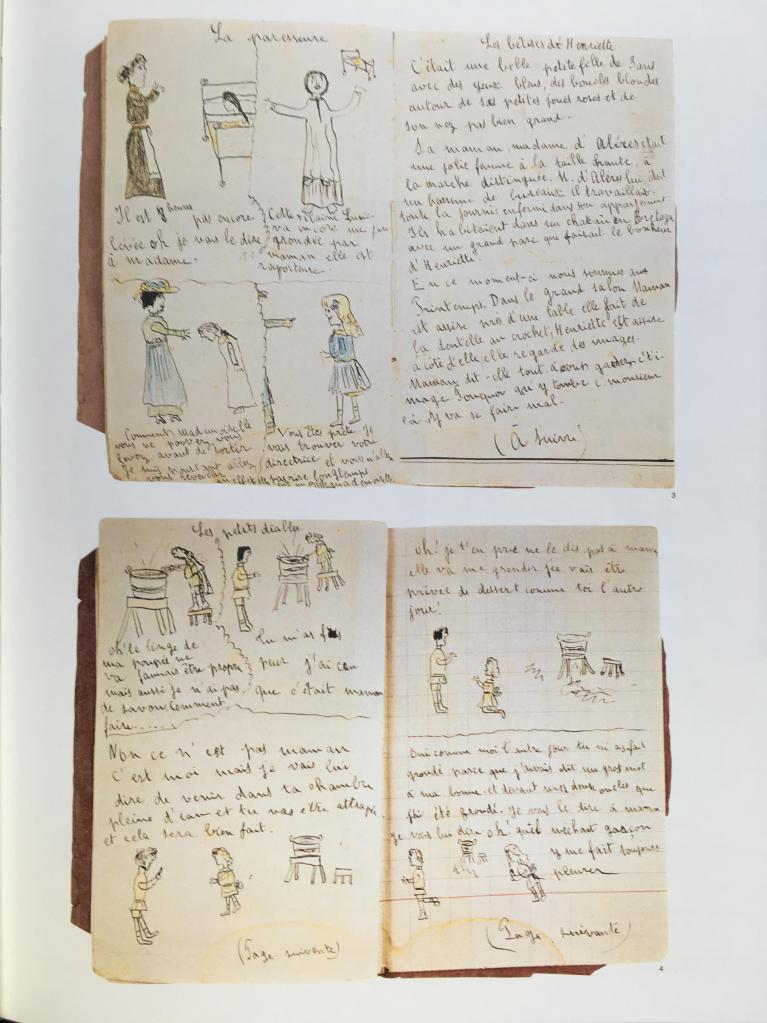 La paresseuse
Il est 8 heures pas encore
levée oh je vais le dire
à madame.
Cette vilaine Lucie
va encore me
grondée par
maman elle est
raporteuse.
Comment Mademoiselle
vous ne pouvez vous
levez avant de sortir
Je suis pourtant allez
vous
Vous êtes prête Je
vais trouver votre
directrice et vous n'allez
pas rire longtemps
mademoiselle
Les bêtises de Henriette.
C'était une belle petite fille de 7 ans
avec des yeux bleus, des boucles blondes
autour de ses petites joues roses et de
son nez pas bien grand.
Sa maman, madame d'Alères était
une jolie femme à la taille haute, à
la marche distinguée. M. d'Alères lui, était
un homme de bureaux il travaillait
toute la journée enfermé dans son appartement
Ils habitaient dans un chateau en Bretagne
avec un grand parc qui faisait le bonheur
d'Henriette
En ce moment-ci nous sommes aux
Printemps. Dans le grand salon Maman
est assise près d'une table elle fait de
la dentelle au crochet, Henriette est assise
à côté d'elle, elle regarde des images.
Maman dit-elle tout à coup gardez c't'i-
mage Pourquoi qu'y tombe c'monsieur
là Y va se faire mal.
(À suivre)
3
Les petits diables.
oh! le linge de
ma poupée ne
va jamais être propre
mais aussi je n'ai pas
de savon comment
faire......
Tu m'as fais
peur j'ai cru
que c'était maman
Non ce n'est pas maman
C'est moi mais je vais lui
dire de venir dans ta chambre
pleine d'eau et tu vas être attrapé
et cela sera bien fait.
(Page suivente)
oh! je t'en prie ne le dis pas à maman
elle va me gronder je vais être
privée de dessert comme toi l'autre
jour!
Oui comme moi l'autre jour tu m'as fait
grondé parce que j'avais dit un gros mot
à ma bonne et devant mes deux oncles que
j'ai été grondé. Je vais le dire à maman
Je vais lui dire oh! quel méchant garçon
y me fait toujours
pleurer
(Page suivante)
4